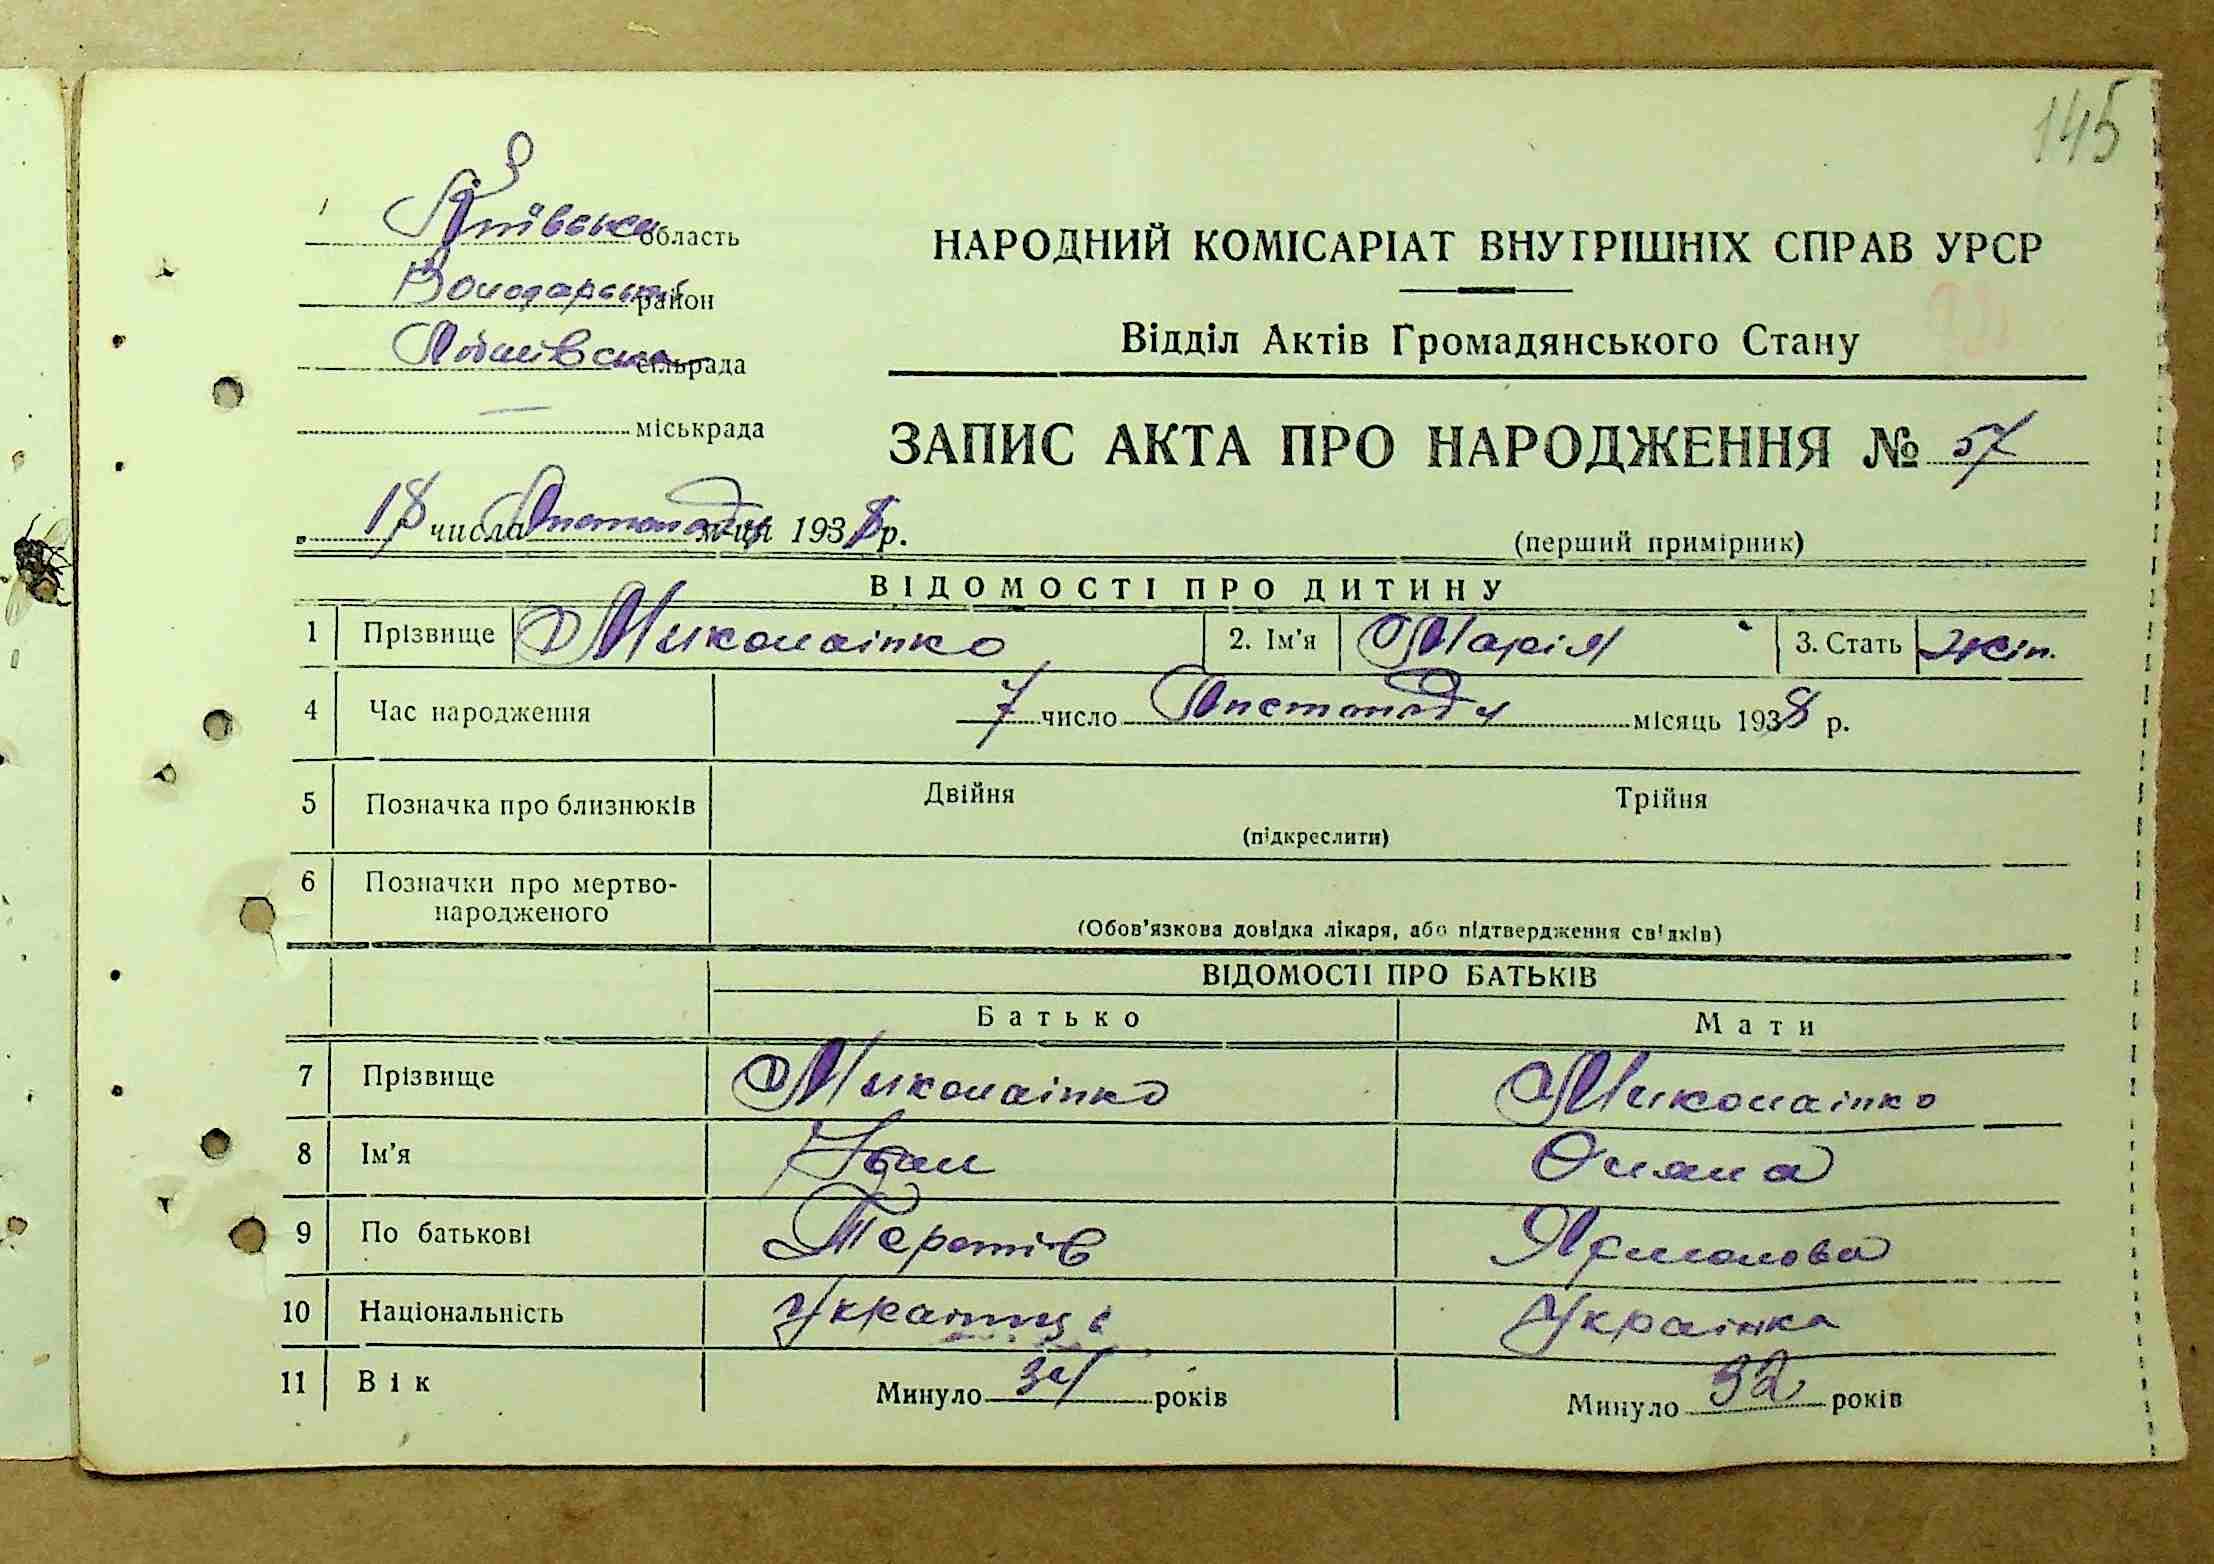 145
Київська область
НАРОДНИЙ КОМІСАРІАТ ВНУТРІШНІХ СПРАВ УРСР
Володарський район
Відділ Актів Громадянського Стану
сільрада
міськрада
ЗАПИС АКТА ПРО НАРОДЖЕННЯ № 57
18 числа Листопада м-ця 1938 р.
(перший примірник)
ВІДОМОСТІ ПРО ДИТИНУ
1 Прізвище Миколаінко 2. Ім'я Марія 3. Стать жін.
4 Час народження 7 число Листопада місяць 1938 р.
5 Позначка про близнюків Двійня Трійня
(підкреслити)
6 Позначки про мертво-
народженого
(Обов'язкова довідка лікаря, або підтвердження свідків)
ВІДОМОСТІ ПРО БАТЬКІВ
Батько Мати
7 Прізвище Миколаінко Миколаінко
8 Ім'я Іван Оляна
9 По батькові
10 Національність Українець Українка
11 Вік Минуло 34 років Минуло 32 років